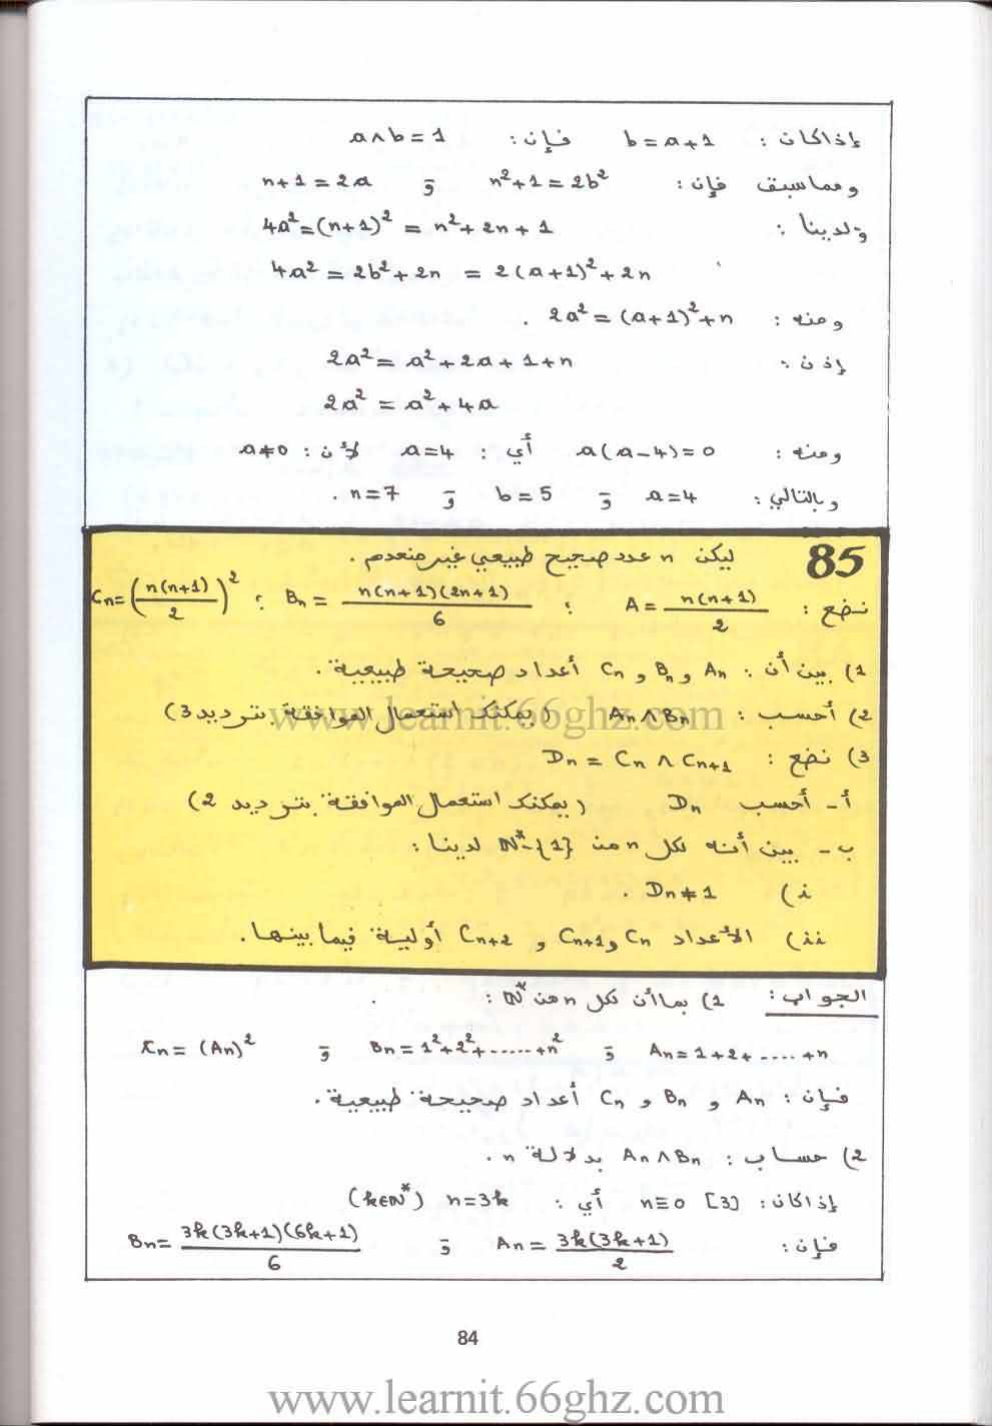 إذا كان : b = a+1 فإن : a∧b = 1
ومما سبق فإن : n²+1 = 2b² و n+1 = 2a
ولدينا : 4a² = (n+1)² = n²+2n+1
4a² = 2b²+2n = 2(a+1)²+2n
ومنه : 2a² = (a+1)²+n .
إذن : 2a² = a²+2a+1+n
2a² = a²+4a
ومنه : a(a-4)=0 أي : a=4 لأن : a≠0
وبالتالي : a=4 و b=5 و n=7 .
85 ليكن n عدد صحيح طبيعي غير منعدم .
نضع : A = n(n+1)/2 ؛ Bn = n(n+1)(2n+1)/6 ؛ Cn = (n(n+1)/2)²
1) بين أن : An و Bn و Cn أعداد صحيحة طبيعية .
2) أحسب : An ∧ Bn (يمكنك استعمال الموافقة بترديد 3)
3) نضع : Dn = Cn ∧ Cn+1
أ- أحسب Dn (يمكنك استعمال الموافقة بترديد 2)
ب- بين أنه لكل n من ℕ*-{1} لدينا :
i) Dn ≠ 1 .
ii) الأعداد Cn و Cn+1 و Cn+2 أولية فيما بينها .
الجواب : 1) بما أن لكل n من ℕ* :
An = 1+2+....+n و Bn = 1²+2²+......+n² و Cn = (An)²
فإن : An و Bn و Cn أعداد صحيحة طبيعية .
2) حساب : An ∧ Bn بدلالة n .
إذا كان : n ≡ 0 [3] أي : n = 3k (k∈ℕ*)
فإن : An = 3k(3k+1)/2 و Bn = 3k(3k+1)(6k+1)/6
84
www.learnit.66ghz.com
www.learnit.66ghz.com